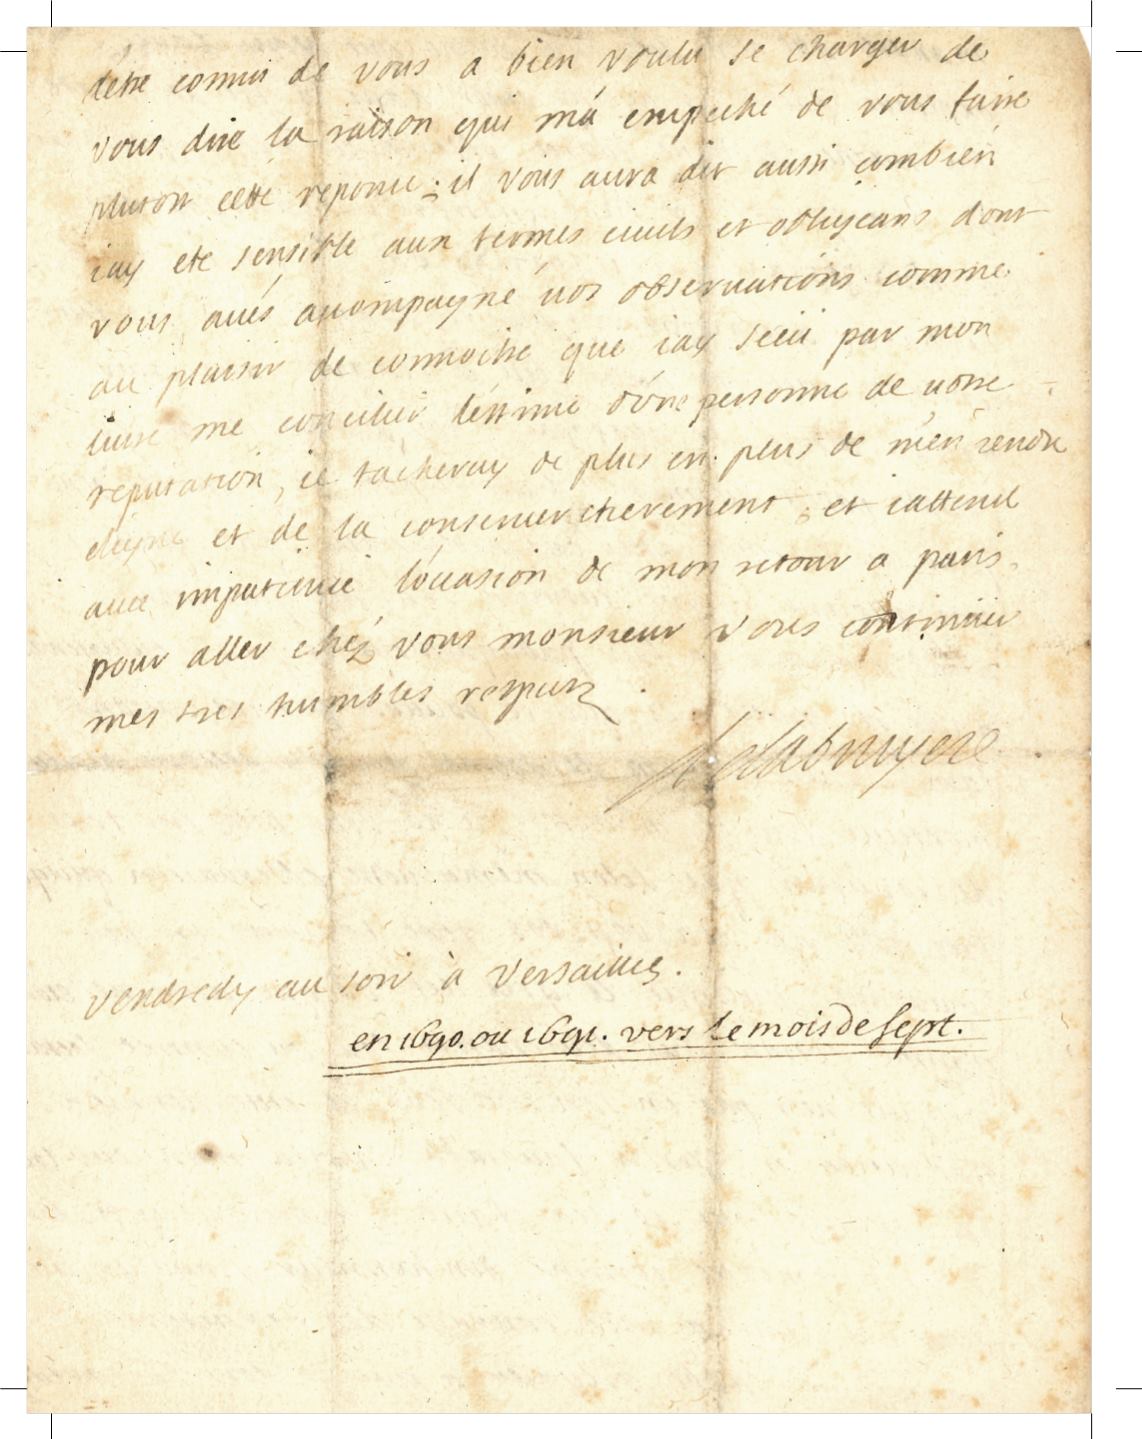 d'etre connu de vous a bien voulu se charger de
vous dire la raison qui m'a empeché de vous faire
plutost cette reponse ; il vous aura dit aussi combien
iay eté sensible aux termes civils et obligeans dont
vous aués acompagné vos obseruations comme
au plaisir de connoitre que iay sceü par mon
liure me concilier l'estime d'vne personne de uotre
reputation, ie tacheray de plus en plus de m'en rendre
digne et de la conseruer cherement ; et iattend
auec impatience l'ocasion de mon retour a paris
pour aller chéz vous monsieur vous continüer
mes tres humbles respectz .
delabruyere
vendredy au soir à Versailles.
en 1690. ou 1691. vers le mois de Sept.